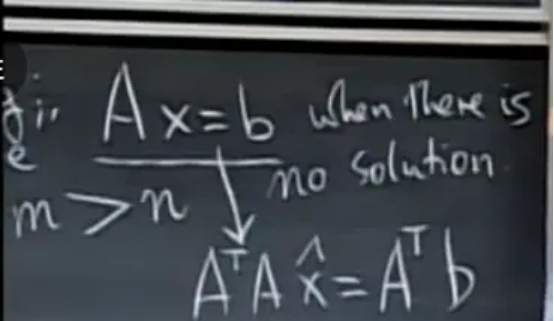 Ax=b when there is
no solution.
m > n
AᵀA x̂ = Aᵀb